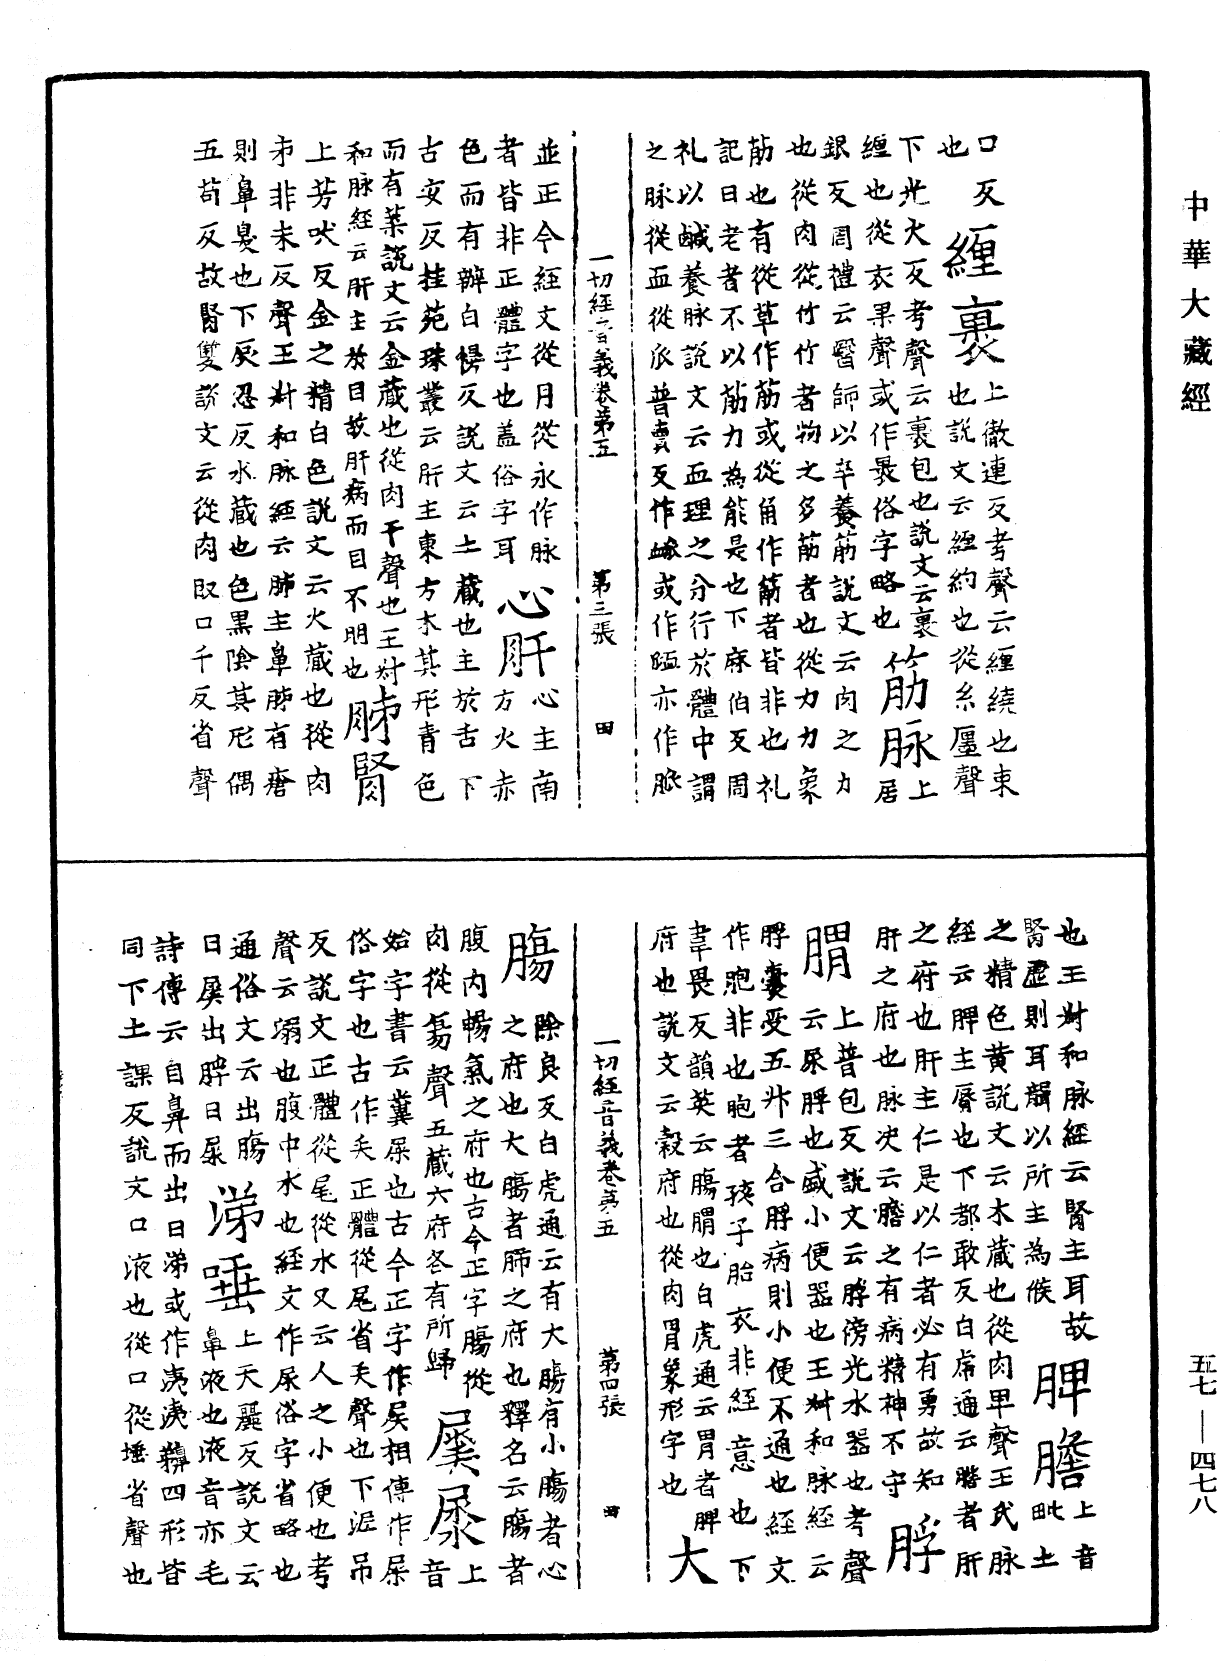 中華大藏經
口反
也
纏裹 上徹連反考聲云纏繞也束
也說文云纏約也從糸廛聲
下光火反考聲云裹包也說文云裹
纏也從衣果聲或作褁俗字略也
筋脉 上居
銀反周禮云醫師以辛養筋說文云肉之力
也從肉從竹竹者物之多筋者也從力力象
筋也有從草作䈥或從角作䈥者皆非也礼
記曰老者不以筋力為能是也下麻伯反周
礼以鹹養脉說文云血理之分行於體中謂
之脉從血從𠂢普賣反作衇或作䘑亦作脈
一切經音義卷第五 第三張 田
並正今經文從月從永作脉
者皆非正體字也蓋俗字耳
心肝 心主南
方火赤
色而有辦白慢反說文云土藏也主於舌下
古安反桂苑珠叢云肝主東方木其形青色
而有葉說文云金藏也從肉干聲也王叔
和脉經云肝主於目故肝病而目不明也
肺腎
上芳吠反金之精白色說文云火藏也從肉
巿非未反聲王叔和脉經云肺主鼻肺有瘡
則鼻臭也下辰忍反水藏也色黑陰其形偶
五苟反故腎雙說文云從肉臤口千反省聲
也王叔和脉經云腎主耳故
腎虛則耳聾以所主為候
脾膽 上音
毗土
之精色黃說文云木藏也從肉卑聲王氏脉
經云脾主脣也下都敢反白虎通云膽者肝
之府也肝主仁是以仁者必有勇故知
肝之府也脉决云膽之有病精神不守
脬
𦝩 上普包反說文云脬傍光水器也考聲
云尿脬也盛小便器也王叔和脉經云
脬囊受五升三合脬病則小便不通也經文
作胞非也胞者孩子胎衣非經意也下
韋畏反韻英云腸𦝩也白虎通云胃者脾
府也說文云穀府也從肉胃象形字也
大
一切經音義卷第五 第四張 田
腸 除良反白虎通云有大腸有小腸者心
之府也大腸者肺之府也釋名云腸者
腹內暢氣之府也古今正字腸從
肉從昜聲五藏六府各有所歸
屎尿 上
音
始字書云糞屎也古今正字作𡱁相傳作屎
俗字也古作𡗜正體從尾省矢聲也下泥吊
反說文正體從尾從水又云人之小便也考
聲云溺也腹中水也經文作尿俗字省略也
通俗文云出腸
曰屎出脬曰尿
涕唾 上天麗反說文云
鼻液也液音亦毛
詩傳云自鼻而出曰涕或作洟洟䶏四形皆
同下土課反說文口液也從口從埵省聲也
五七—四七八